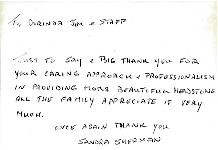 To DORINDA JIM & STAFF
JUST TO SAY A BIG THANK YOU FOR
YOUR CARING APPROACH & PROFESSIONALISM
IN PROVIDING MUMS BEAUTIFUL HEADSTONE
ALL THE FAMILY APPRECIATE IT VERY
MUCH.
ONCE AGAIN THANK YOU
SANDRA SHERMAN